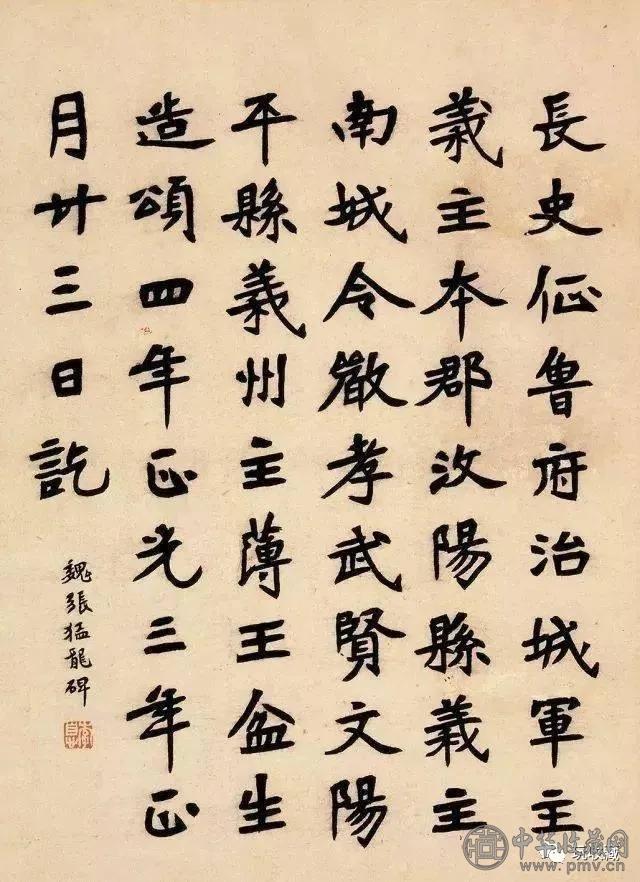 長史征魯府治城軍主
義主本郡汶陽縣義主
南城令嚴孝武賢文陽
平縣義州主薄王盆生
造頌四年正光三年正
月廿三日訖
魏張猛龍碑
李息
中华收藏网
www.pmv.cn